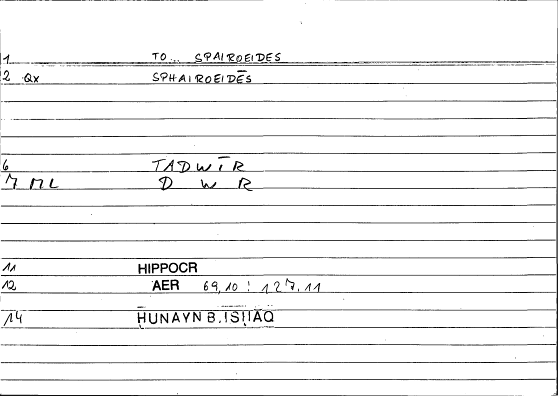 1 TO... SPAIROEIDES
2 Qx SPHAIROEIDĒS
6 TADWĪR
7 ML D W R
11 HIPPOCR
12 AER 69,10 : 127,11
14 ḤUNAYN B. ISḤĀQ